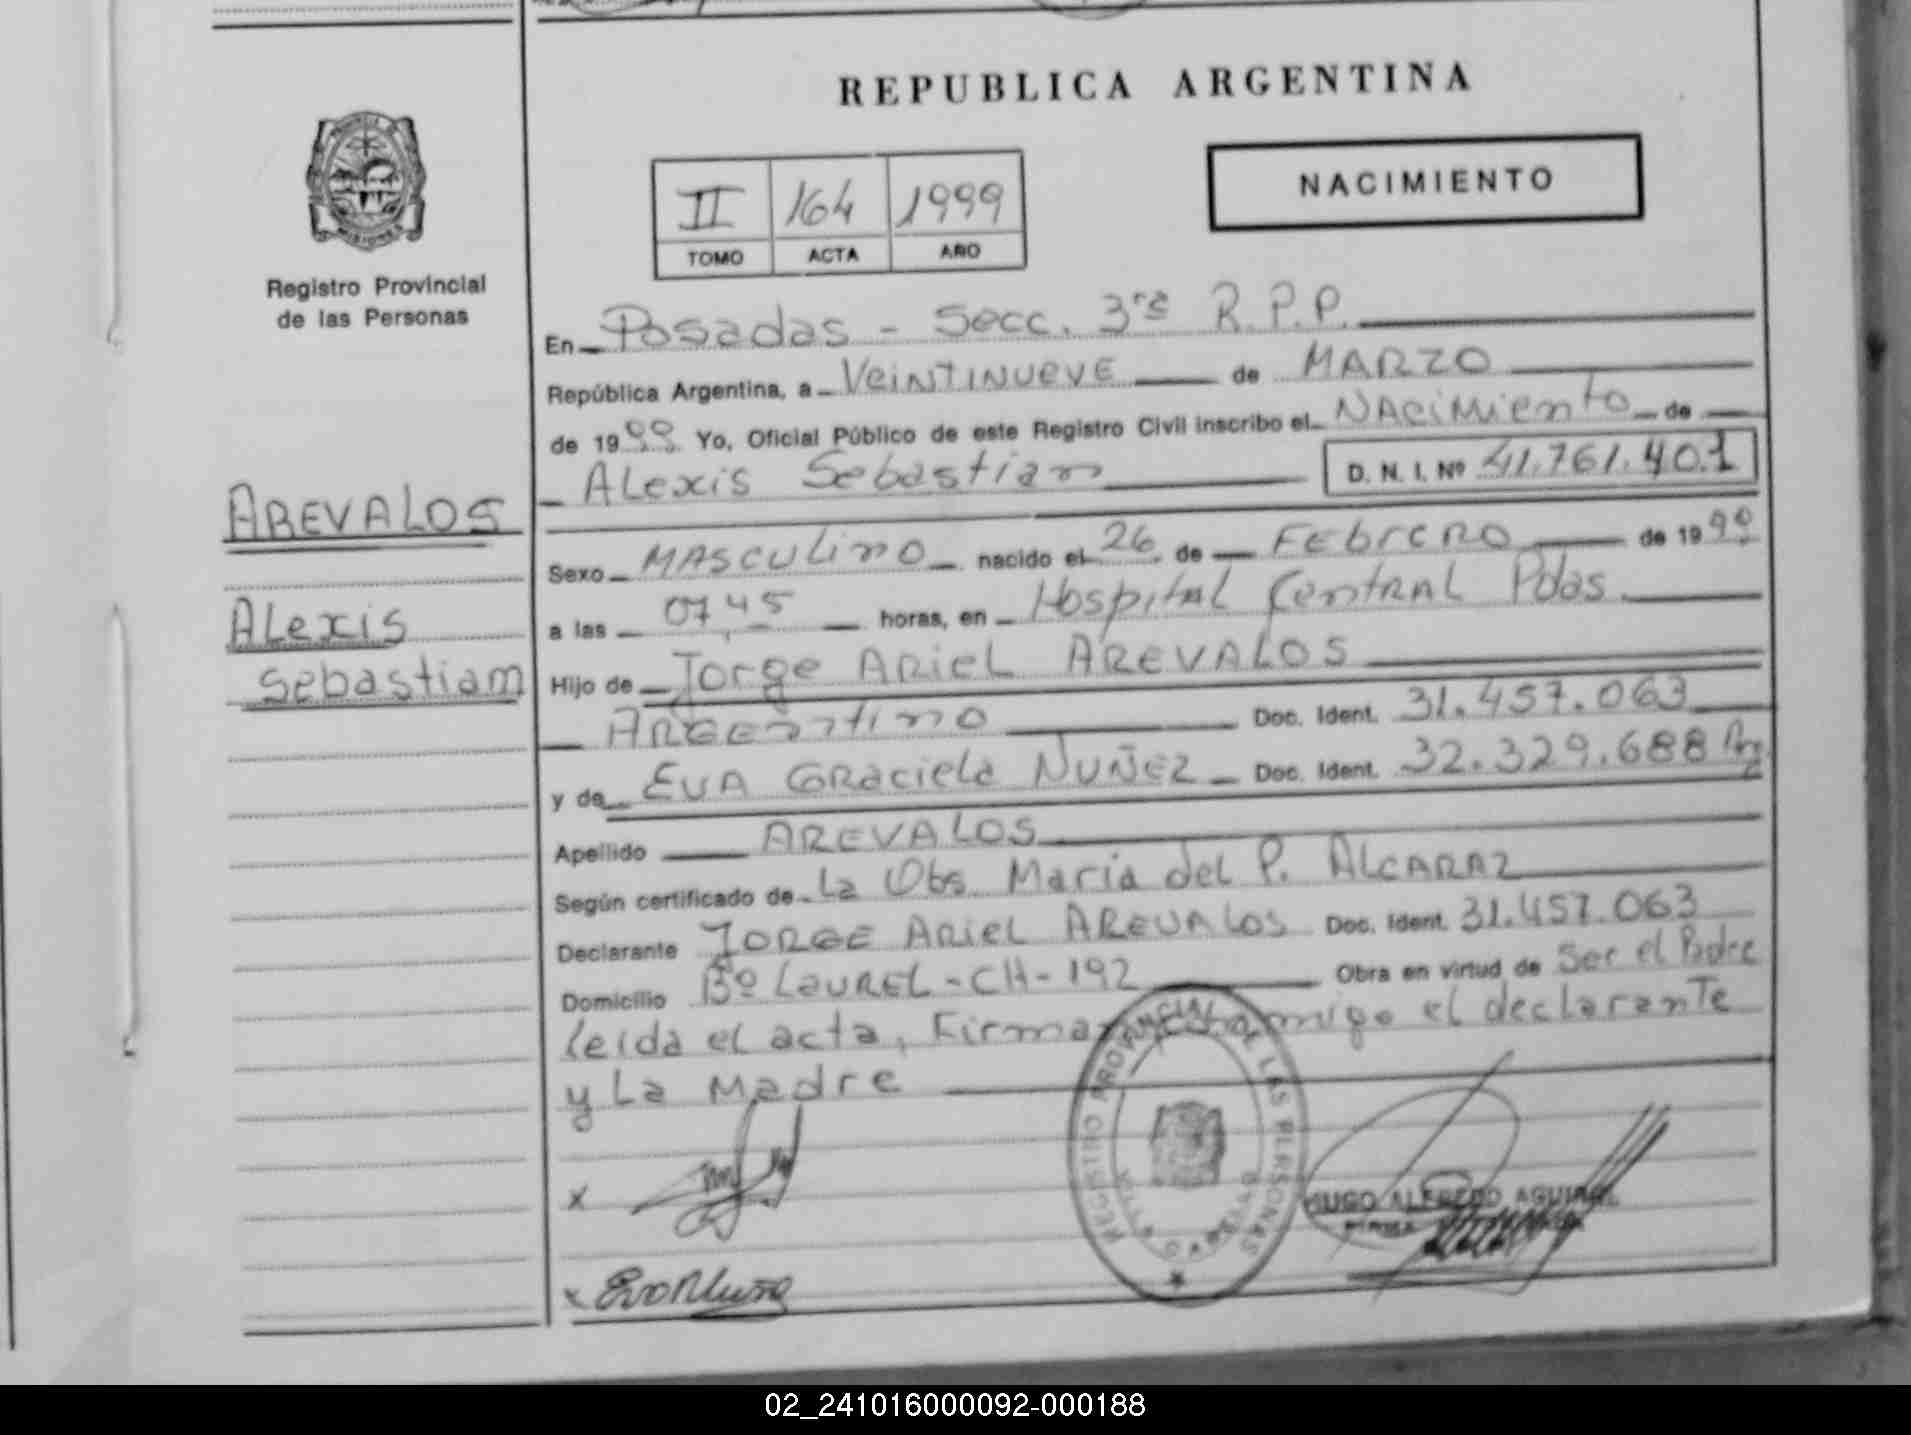 REPUBLICA ARGENTINA
NACIMIENTO
II 164 1999
TOMO ACTA AÑO
Registro Provincial
de las Personas
En Posadas - Secc. 3ra R.P.P.
República Argentina, a Veintinueve de MARZO
de 1999 Yo, Oficial Público de este Registro Civil inscribo el Nacimiento de
Alexis Sebastian D. N. I. Nº 41.761.401
AREVALOS
Alexis
Sebastian
Sexo MASCULINO nacido el 26 de FEBRERO de 1999
a las 07,45 horas, en Hospital Central Pdas
Hijo de Jorge Ariel AREVALOS
ARGENTINO Doc. Ident. 31.457.063
y de EVA Graciela NUÑEZ Doc. Ident. 32.329.688 Arg
Apellido AREVALOS
Según certificado de La Obs Maria del P. ALCARAZ
Declarante JORGE ARIEL AREVALOS Doc. Ident. 31.457.063
Domicilio Bº LAUREL - CH - 192 Obra en virtud de ser el Padre
leida el acta, Firman conmigo el declarante
y La Madre
REGISTRO PROVINCIAL DE LAS PERSONAS
HUGO ALFREDO
x
x Eva Nuñez
02_241016000092-000188